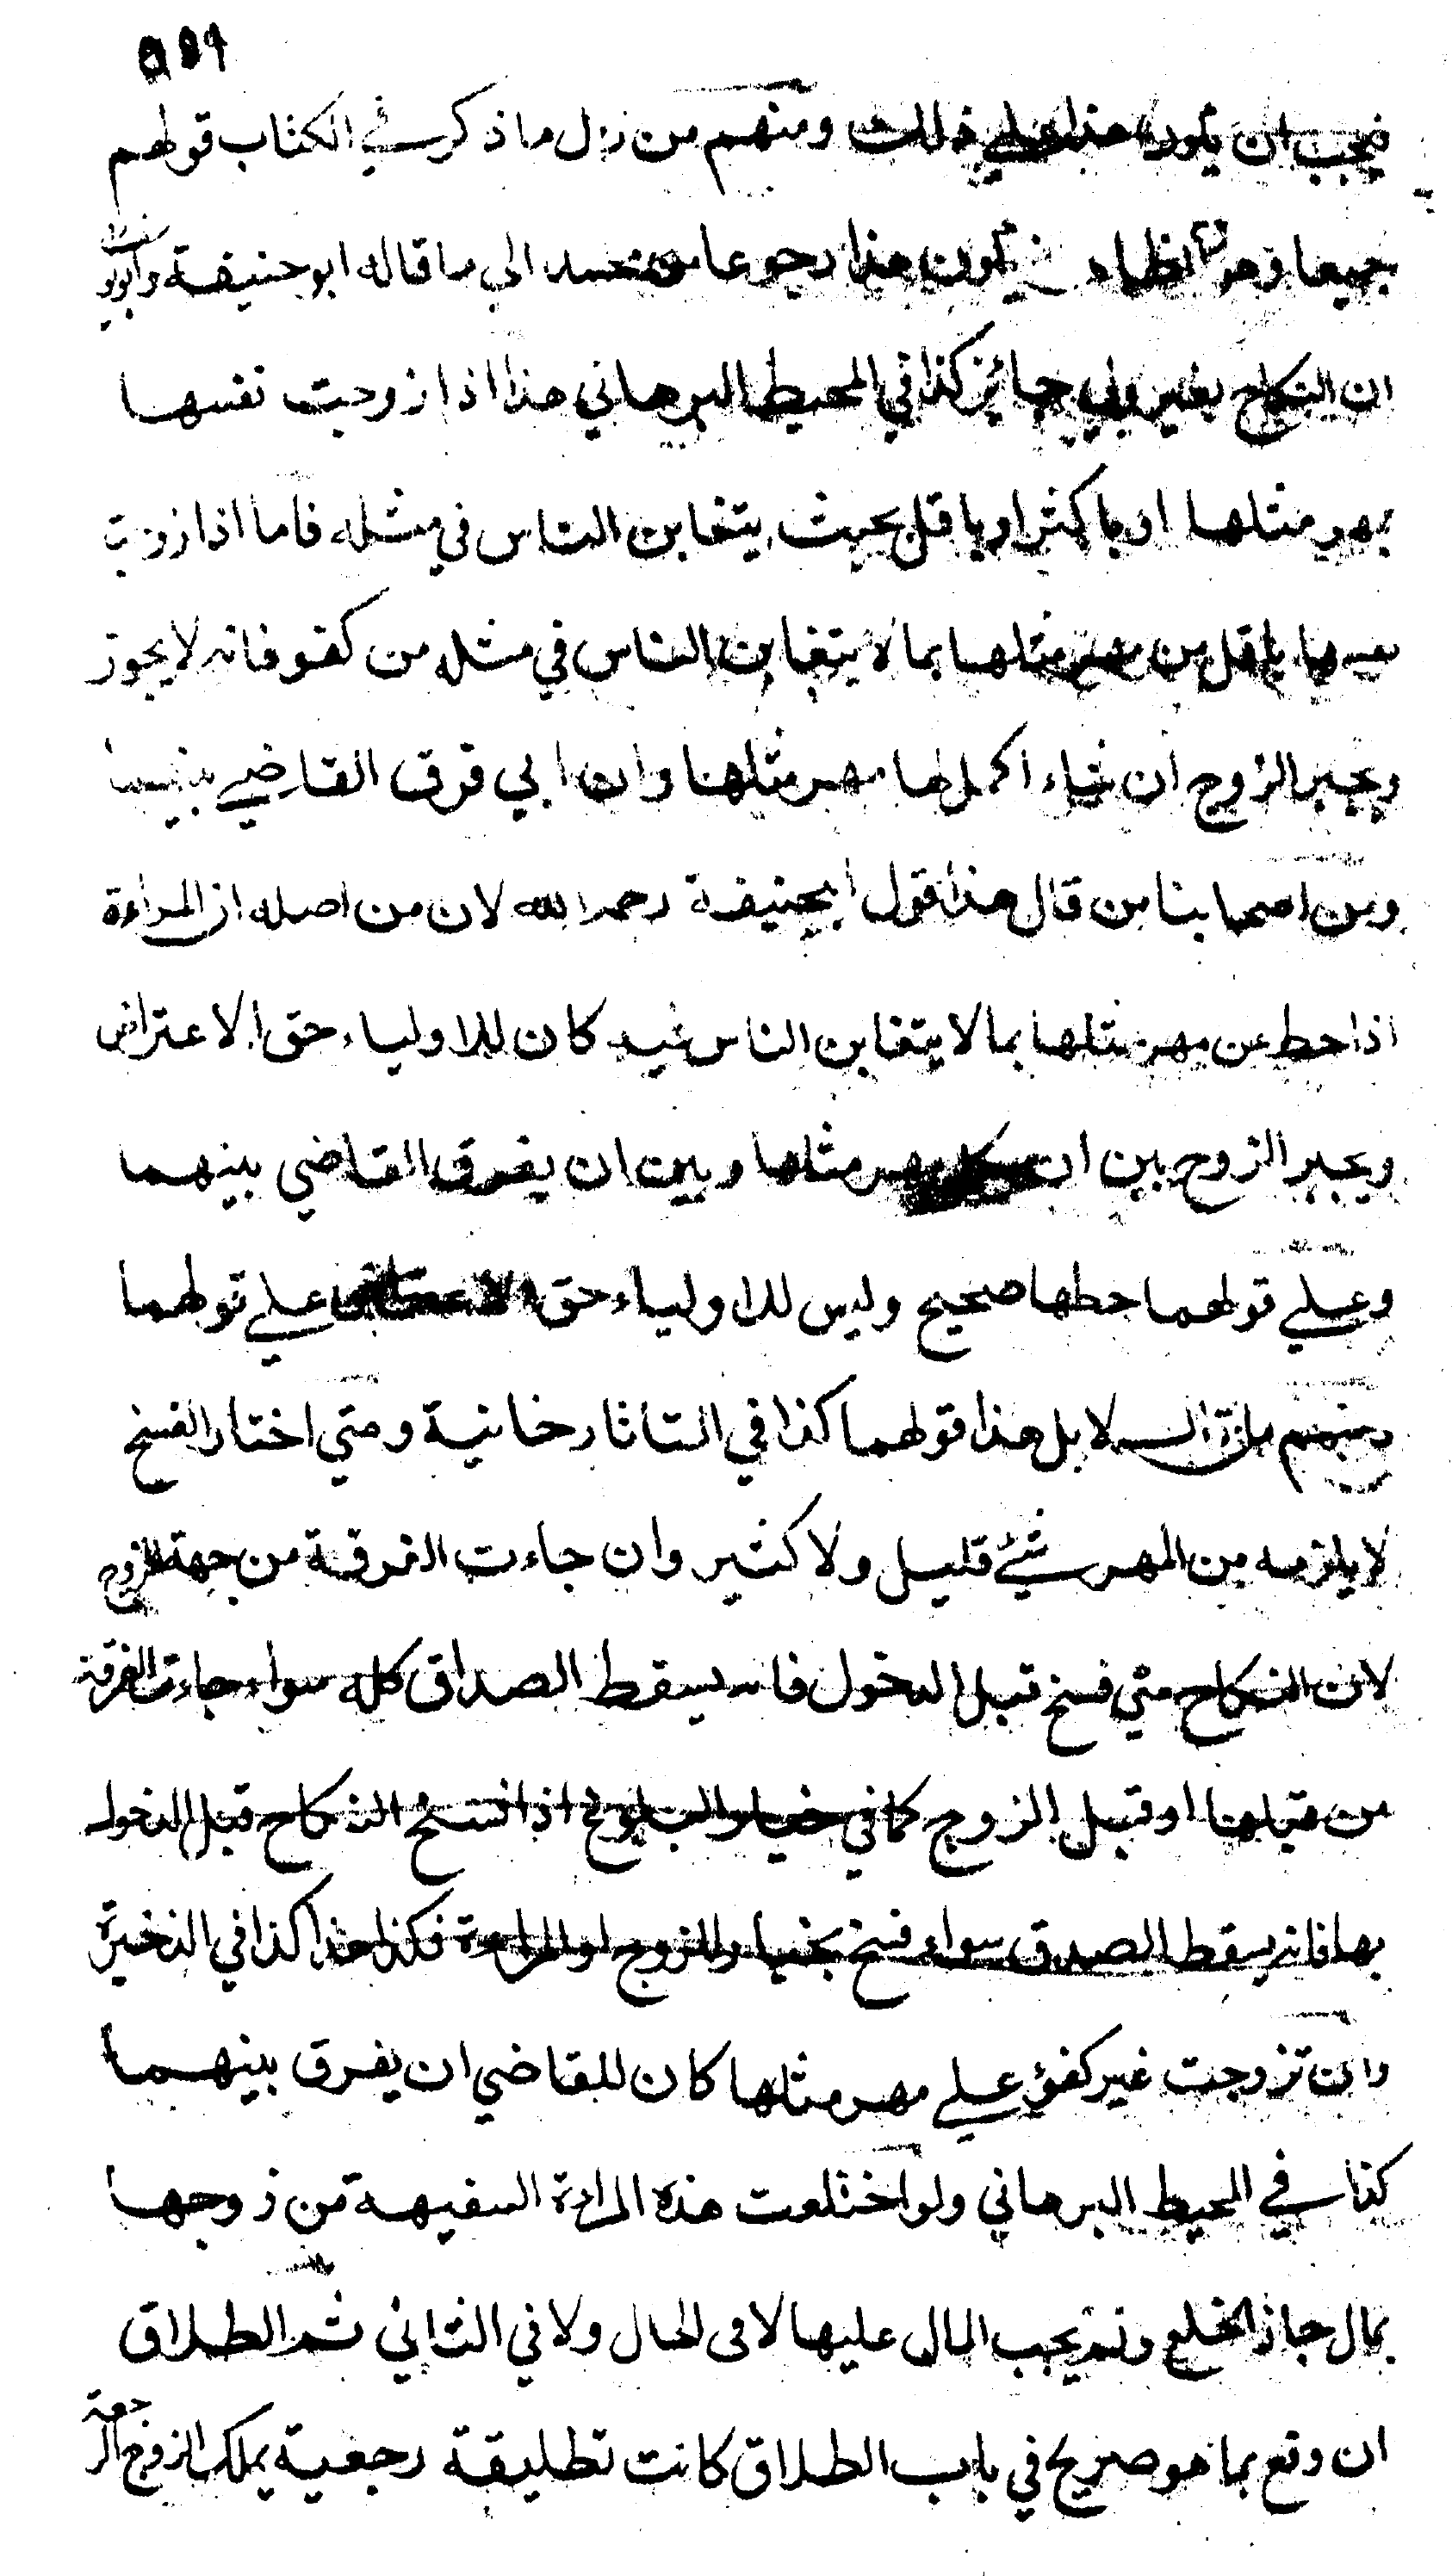 فيجب ان يكون هذا على ذلك ومنهم من زل ما ذكر في الكتاب قولهم
جميعا وهو الظاهر يكون هذا رجوعا من محمد الى ما قاله ابو حنيفة وابو يوسف
ان النكاح بغير ولي جائز كذا في المحيط البرهاني هذا اذا زوجت نفسها
بمهر مثلها او باكثر او باقل بحيث يتغابن الناس في مثله فاما اذا زوجت
نفسها باقل من مهر مثلها بما لا يتغابن الناس في مثله من كفو فانه لا يجوز
ويخير الزوج ان شاء اكمل لها مهر مثلها وان ابى فرق القاضي بينهما
ومن اصحابنا من قال هذا قول ابيحنيفة رحمه الله لان من اصله ان المراءة
اذا حط عن مهر مثلها بما لا يتغابن الناس فيه كان للاولياء حق الاعتراض
ويخير الزوج بين ان يكمل مهر مثلها وبين ان يفرق القاضي بينهما
وعلي قولهما حطها صحيح وليس للاولياء حق الاعتراض علي قولهما
ومنهم من قال لا بل هذا قولهما كذا في التاتارخانية ومتي اختار الفسخ
لا يلزمه من المهر شيء قليل ولا كثير وان جاءت الفرقة من جهة الزوج
لان النكاح متي فسخ قبل الدخول فانه يسقط الصداق كله سواء جاءت الفرقة
من قبلها او قبل الزوج كما في خيار البلوغ اذا فسخ النكاح قبل الدخول
بها فانه يسقط الصدق سواء فسخ بخيار الزوج او المراءة فكذا هذا كذا في الذخيرة
وان تزوجت غير كفؤ علي مهر مثلها كان للقاضي ان يفرق بينهما
كذا في المحيط البرهاني ولو اختلعت هذه المراءة السفيهة من زوجها
بمال جاز الخلع ولم يجب المال عليها لا في الحال ولا في الثاني ثم الطلاق
ان وقع بما هو صريح في باب الطلاق كانت تطليقة رجعية يملك الزوج الرجعة